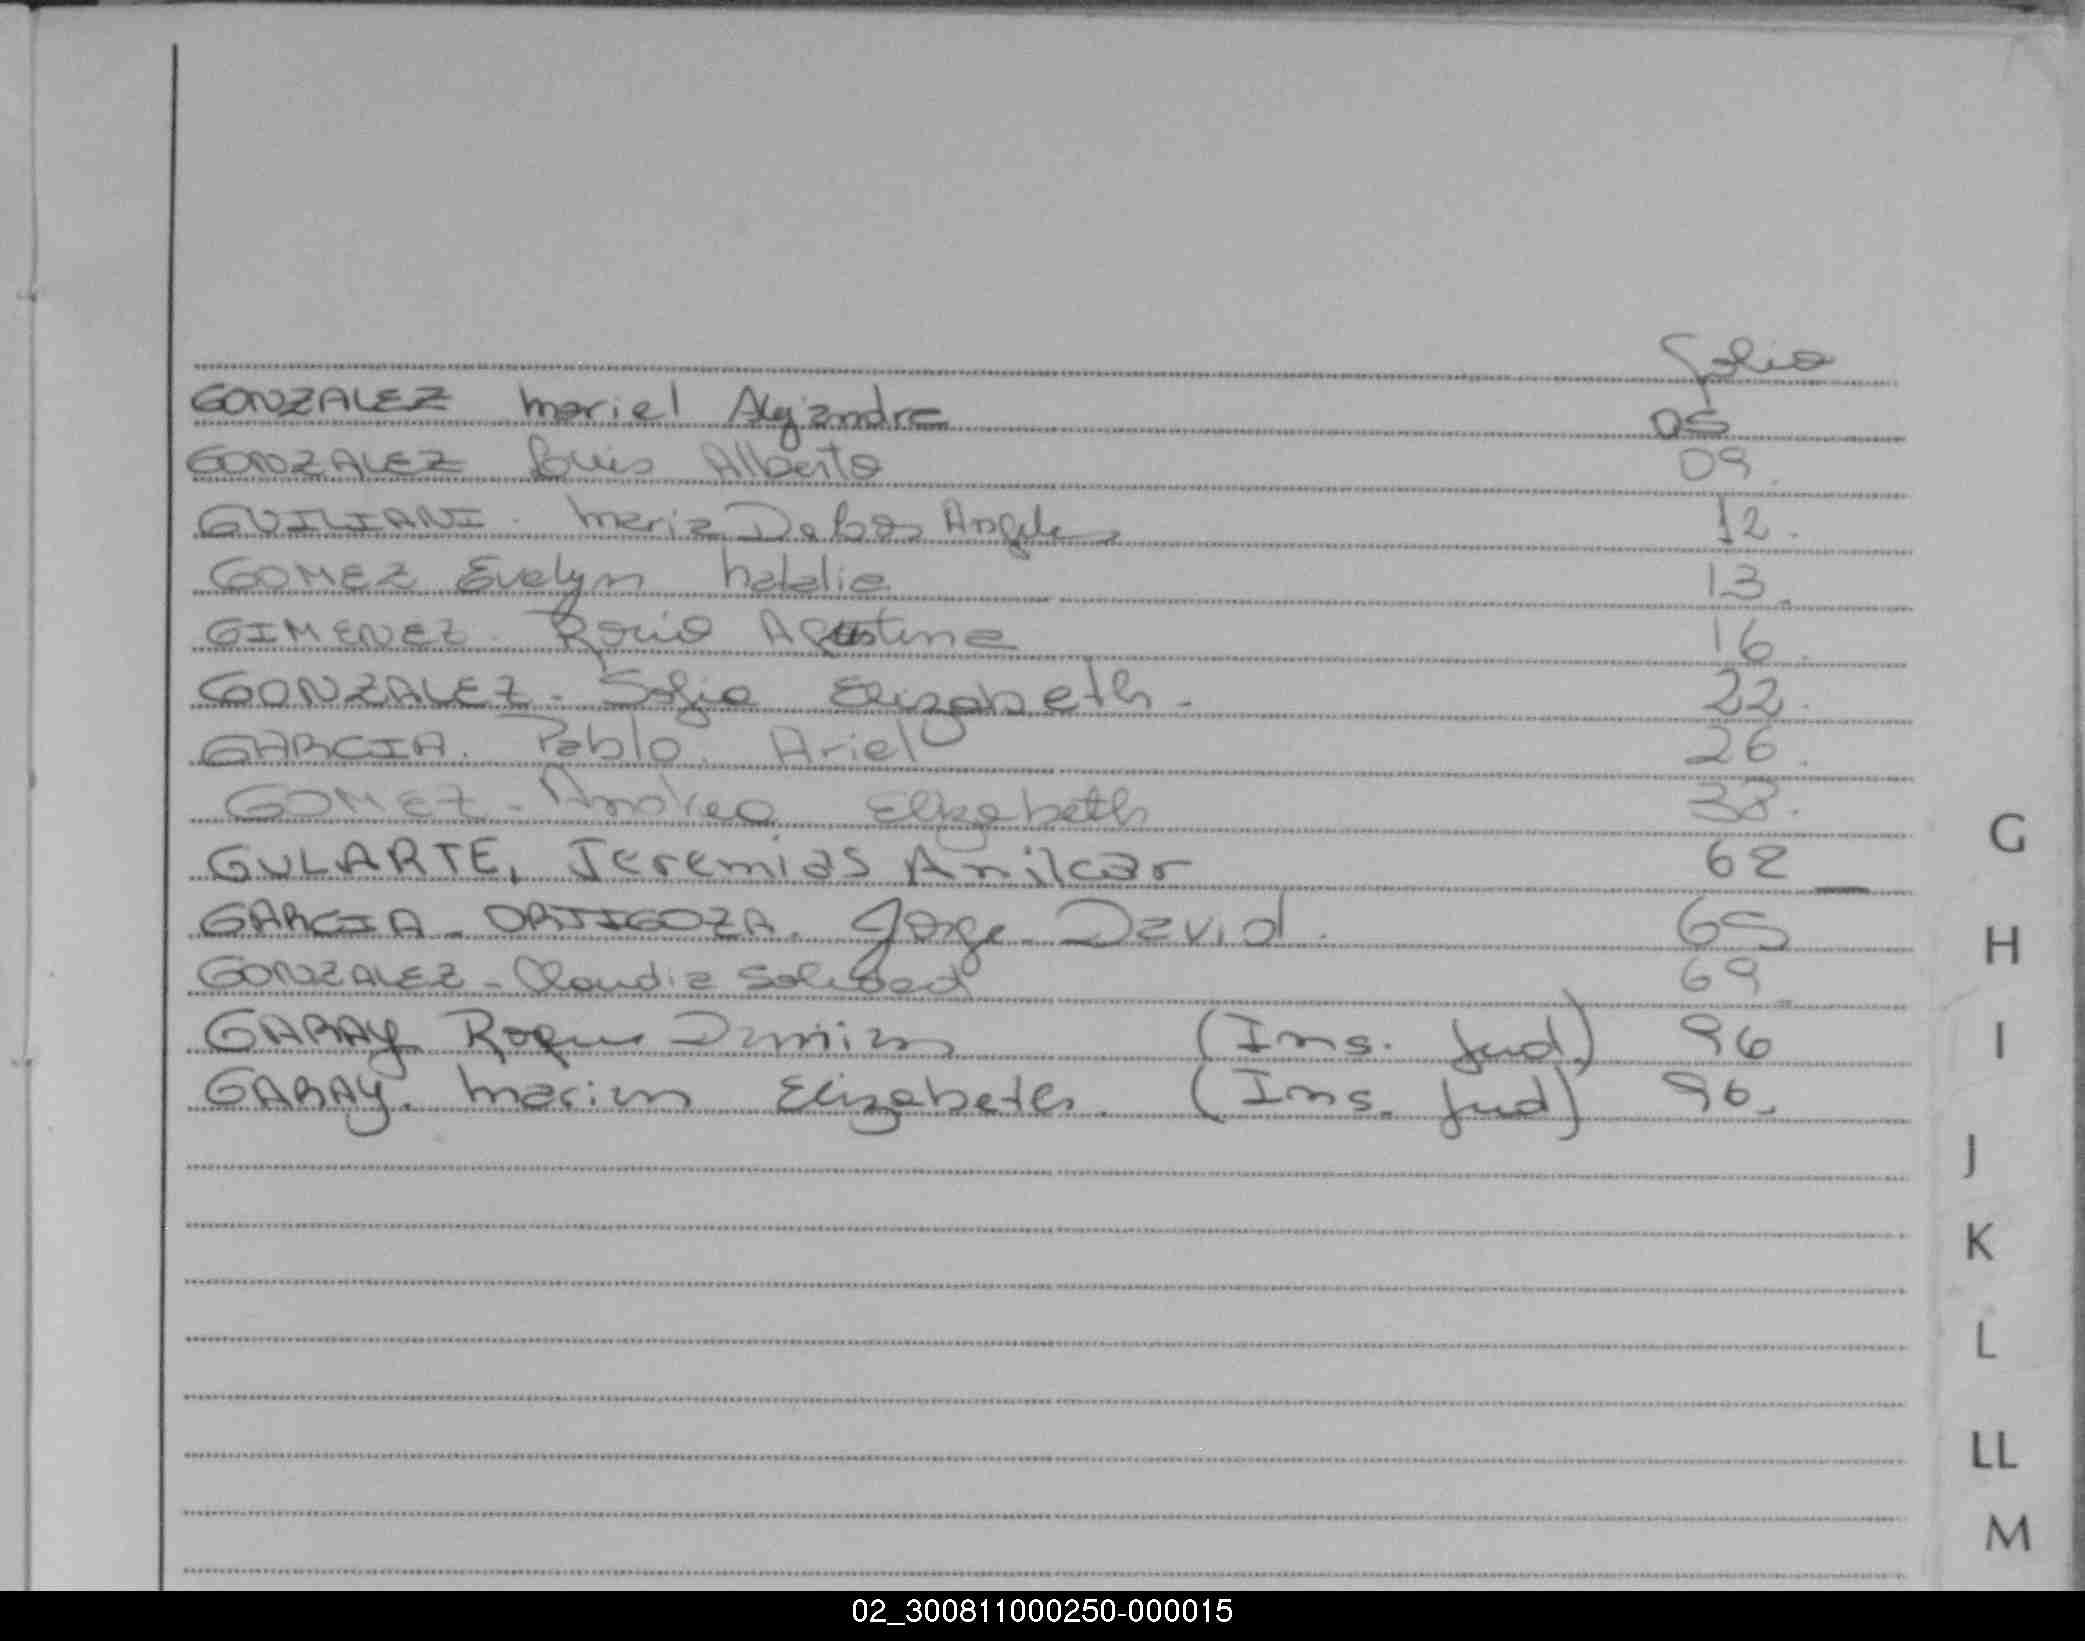 Folio
GONZALEZ Mariel Alejandra 05
GONZALEZ Luis Alberto 09.
GUILIANI. Maria De Los Angeles 12.
GOMEZ Evelyn Natalia 13.
GIMENEZ. Rocio Agustina 16.
GONZALEZ. Sofia Elizabeth. 22.
GARCIA. Pablo. Ariel 26.
GOMEZ. Andrea Elizabeth 38.
GULARTE, Jeremias Amilcar 62
GARCIA - ORTIGOZA. Jorge David. 65
GONZALEZ - Claudia Soledad 69.
GARAY Roque (Ins. Jud.) 96
GARAY. Elizabeth. (Ins. Jud) 96.
G
H
I
J
K
L
LL
M
02_300811000250-000015